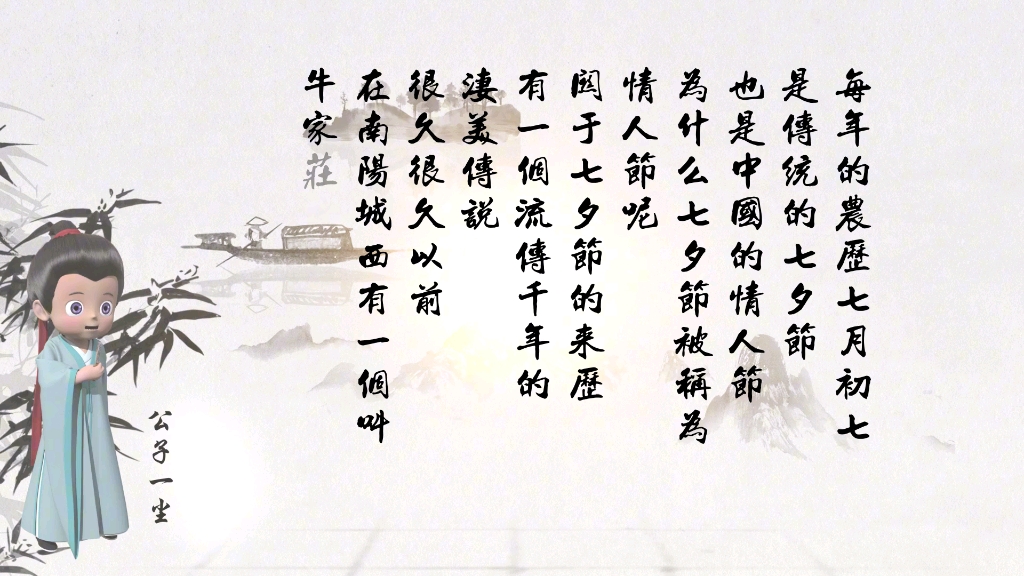 每年的農歷七月初七
是傳统的七夕節
也是中國的情人節
為什么七夕節被稱為
情人節呢
関于七夕節的来歷
有一個流傳千年的
淒美傳説
很久很久以前
在南陽城西有一個叫
牛家莊
公子一尘